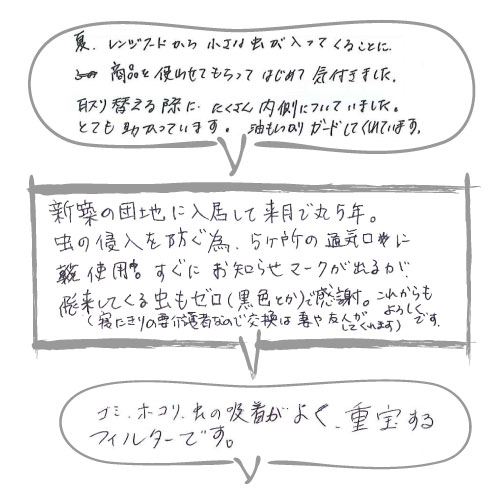 夏、レンジフードから小さな虫が入ってくることに
商品を使わせてもらってはじめて気付きました。
取り替える際に、たくさん内側についていました。
とても助かっています。油もしっかりガードしてくれています。
新築の団地に入居して来月で丸5年。
虫の侵入を防ぐ為、5ヶ所の通気口に
使用。すぐにお知らせマークが出るが
飛来してくる虫もゼロ(黒色とか)で感謝。これからもよろしくです。
(寝たきりの要介護者なので交換は妻や友人がしてくれます)
ゴミ、ホコリ、虫の吸着がよく、重宝する
フィルターです。